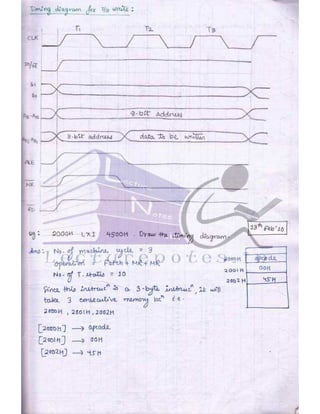 Timing diagram for I/O write :
T1 T2 T3
CLK
IO/M̅
S1
S0
A15-A8
8-bit address
AD7-AD0
8-bit address
data to be written
ALE
WR
RD
Lecture
Notes
23rd Feb'10
eg : 2000H LXI 4500H . Draw the timing diagram.
Ans : No. of machine cycle = 3
Operation = Fetch + MR + MR
No. of T. states = 10
Since this instrucⁿ is a 3-byte instrucⁿ, it will
take 3 consecutive memory locⁿ i.e.
2000H, 2001H, 2002H
[2000H] → opcode
[2001H] → 00H
[2002H] → 45H
2000H opcode
2001H 00H
2002H 45H